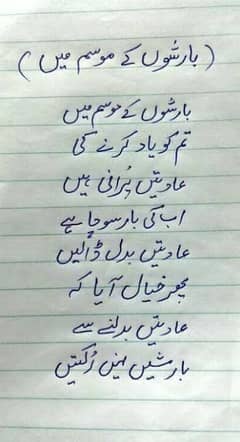 ( بارشوں کے موسم میں )
بارشوں کے موسم میں
تم کو یاد کرنے کی
عادتیں پُرانی ہیں
اب کی بار سوچا ہے
عادتیں بدل ڈالیں
پھر خیال آیا کہ
عادتیں بدلنے سے
بارشیں نہیں رُکتیں